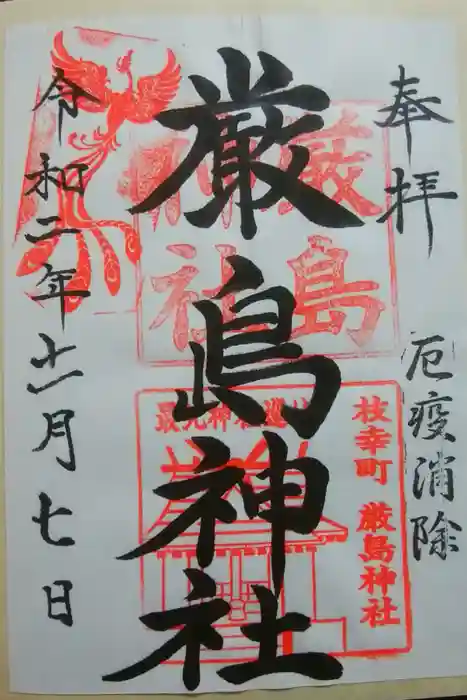 奉拝
厄疫消除
厳島神社
令和二年十一月七日
厳島
神社
枝幸町 厳島神社